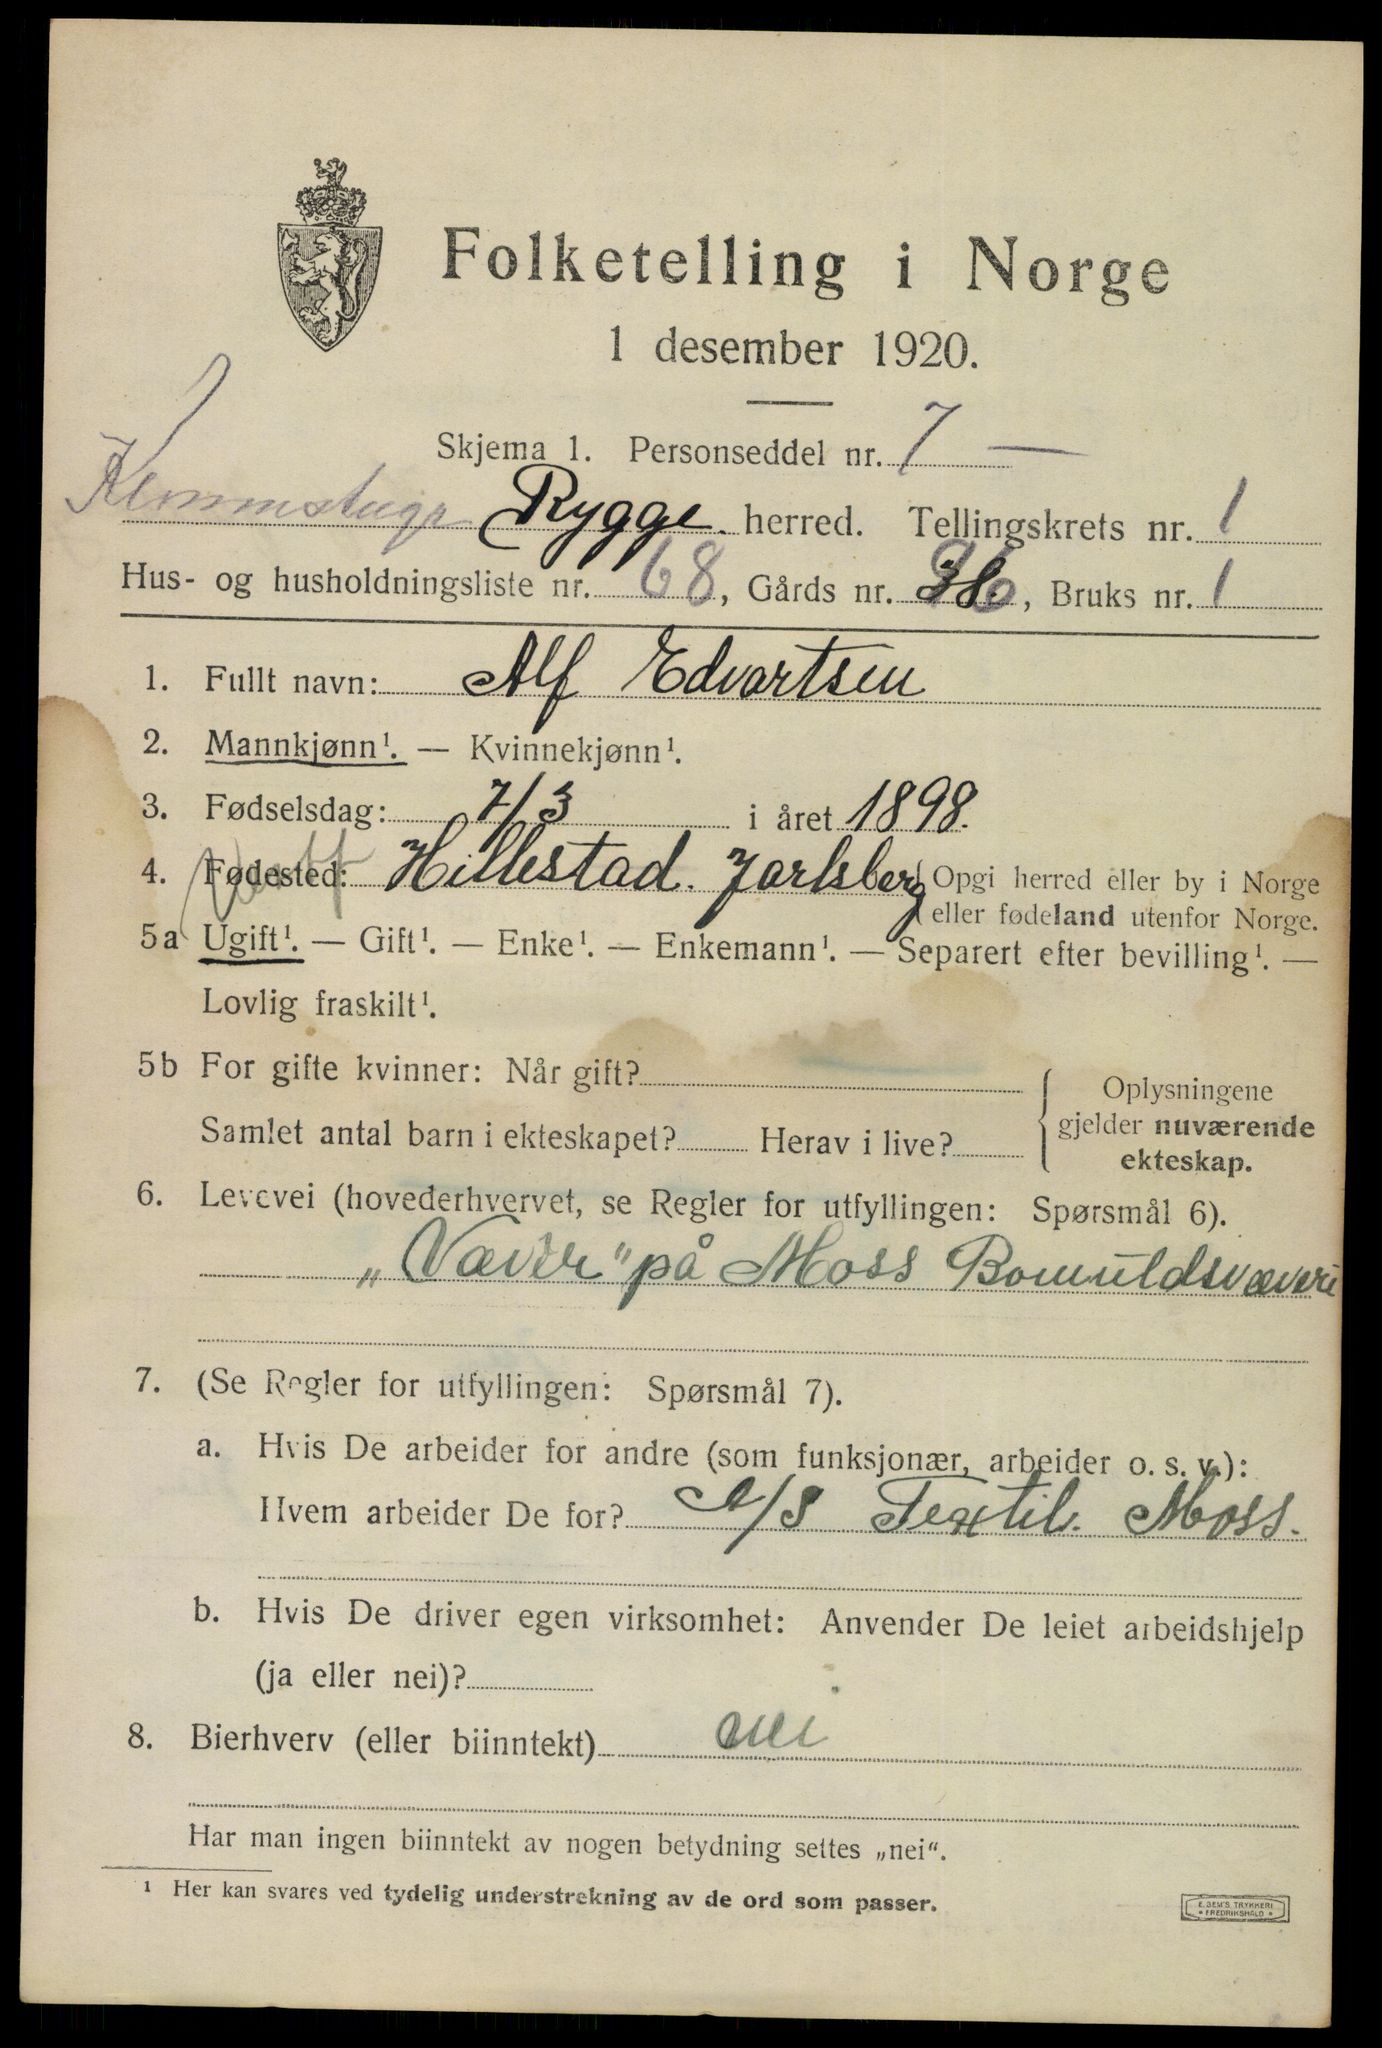 Folketelling i Norge
1 desember 1920.
Skjema 1. Personseddel nr. 7 —
Rygge herred. Tellingskrets nr. 1
Hus- og husholdningsliste nr. 68, Gårds nr. , Bruks nr. 1
1. Fullt navn: Alf Edvartsen
2. Mannkjønn¹. — Kvinnekjønn¹.
3. Fødselsdag: 7/3 i året 1898.
4. Fødested: Hillestad. Jarlsberg (Opgi herred eller by i Norge
eller fødeland utenfor Norge.
5a Ugift¹. — Gift¹. — Enke¹. — Enkemann¹. — Separert efter bevilling¹. —
Lovlig fraskilt¹.
5b For gifte kvinner: Når gift?
Samlet antal barn i ekteskapet? Herav i live?
Oplysningene
gjelder nuværende
ekteskap.
6. Levevei (hovederhvervet, se Regler for utfyllingen: Spørsmål 6).
„Væver" på Moss Bomuldsvæveri
7. (Se Regler for utfyllingen: Spørsmål 7).
a. Hvis De arbeider for andre (som funksjonær, arbeider o. s. v.):
Hvem arbeider De for? A/S Textil. Moss.
b. Hvis De driver egen virksomhet: Anvender De leiet arbeidshjelp
(ja eller nei)?
8. Bierhverv (eller biinntekt) nei
Har man ingen biinntekt av nogen betydning settes „nei".
¹ Her kan svares ved tydelig understrekning av de ord som passer.
E. SEM'S TRYKKERI
* FREDRIKSHALD *